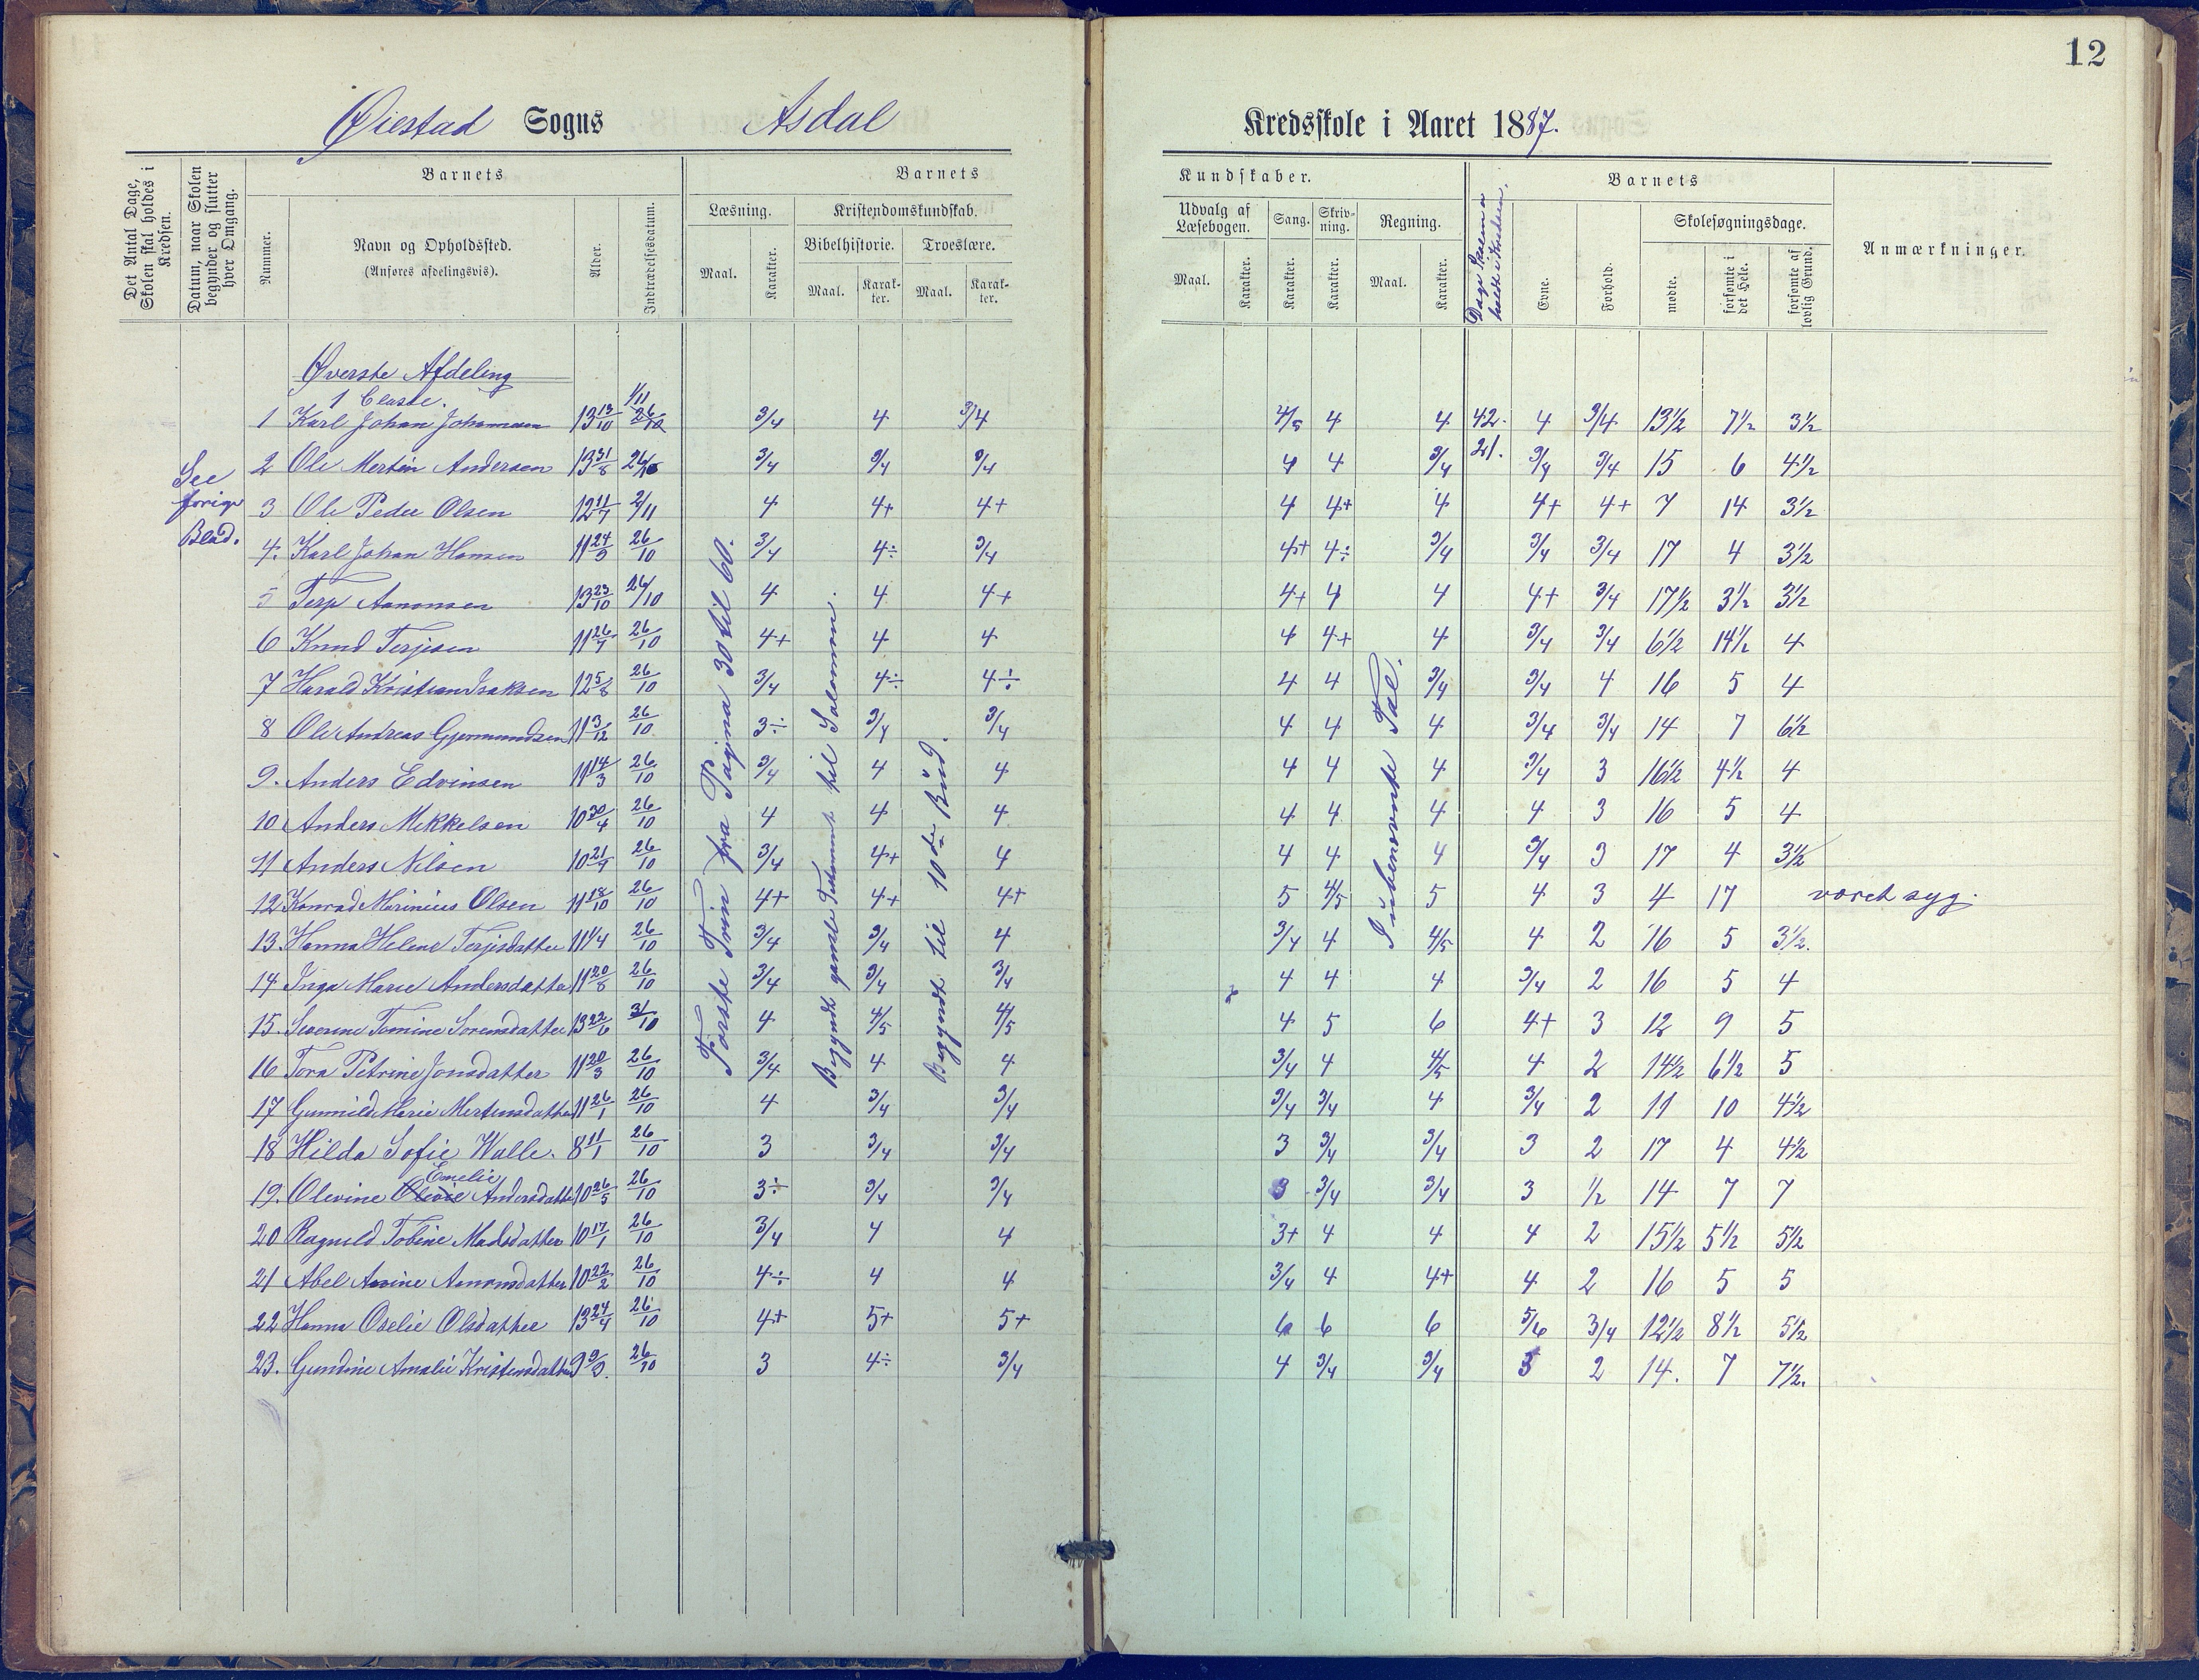 12
Øiestad Sogns Asdal Kredsskole i Aaret 1887.
Det Antal Dage, Skolen skal holdes i Kredsen.
Datum, naar Skolen begynder og slutter hver Omgang.
Barnets
Nummer.
Navn og Opholdssted.
(Anføres afdelingsvis).
Alder.
Indtrædelsesdatum.
Barnets
Læsning.
Maal.
Karakter.
Kristendomskundskab.
Bibelhistorie.
Maal.
Karakter.
Troeslære.
Maal.
Karakter.
Kundskaber.
Udvalg af Læsebogen.
Maal.
Karakter.
Sang.
Karakter.
Skrivning.
Karakter.
Regning.
Maal.
Karakter.
Dage Skolen er holdt i Kredsen.
Barnets
Evne.
Forhold.
Skolesøgningsdage.
mødte.
forsømte i det Hele.
forsømte af lovlig Grund.
Anmærkninger.
See forige Blad.
Øverste Afdeling
1 Classe.
Første Trin fra Pagina 30 til 60.
Begyndt gamle Testament til Salomon.
Begyndt til 10de Bud.
I ubenævnte Tal.
1 Karl Johan Johannesen 13 13/10 1/11 26/10 3/4 4 3/4 4/5 4 4 42. 4 3/4 13½ 7½ 3½
2 Ole Martin Andersen 13 31/8 26/10 3/4 3/4 3/4 4 4 3/4 21. 3/4 3/4 15 6 4½
3 Ole Peder Olsen 12 11/7 2/11 4 4+ 4+ 4 4+ 4 4+ 4+ 7 14 3½
4. Karl Johan Hansen 11 24/9 26/10 3/4 4÷ 3/4 4+ 4÷ 3/4 3/4 3/4 17 4 3½
5 Terje Aanonsen 13 23/10 26/10 4 4 4+ 4+ 4 4 4+ 3/4 17½ 3½ 3½
6 Knud Terjesen 11 26/7 26/10 4+ 4 4 4 4+ 4 3/4 3/4 6½ 14½ 4
7 Harald Kristian Isaksen 12 5/8 26/10 3/4 4÷ 4÷ 4 4 3/4 3/4 4 16 5 4
8 Ole Andreas Gjermundsen 11 3/12 26/10 3÷ 3/4 3/4 4 4 4 3/4 3/4 14 7 6½
9. Anders Edvinsen 11 14/3 26/10 3/4 4 4 4 4 4 3/4 3 16½ 4½ 4
10 Anders Mikkelsen 10 30/4 26/10 4 4 4 4 4 4 4 3 16 5 4
11 Anders Nilsen 10 21/9 26/10 3/4 4+ 4 4 4 4 3/4 3 17 4 3½
12 Konrad Marinius Olsen 11 18/10 26/10 4+ 4+ 4+ 5 4/5 5 4 3 4 17 været syg.
13. Hanna Helene Terjesdatter 11 1/4 26/10 3/4 3/4 4 3/4 4 4/5 4 2 16 5 3½.
14 Inga Marie Andersdatter 11 20/8 26/10 3/4 3/4 3/4 4 4 4 3/4 2 16 5 4
15. Severine Tomine Sorensdatter 13 22/6 3/10 4 4/5 4/5 4 5 6 4+ 3 12 9 5
16 Tora Petrine Jonsdatter 11 20/3 26/10 3/4 4 4 3/4 4 4/5 4 2 14½ 6½ 5
17 Gunnild Marie Mortensdatter 11 26/1 26/10 4 3/4 3/4 3/4 3/4 4 3/4 2 11 10 4½
18 Hilda Sofie Walle. 8 11/1 26/10 3 3/4 3/4 3 3/4 3/4 3 2 17 4 4½
19. Olevine Emelie Andersdatter 10 26/5 26/10 3÷ 3/4 3/4 3 3/4 3/4 3 ½ 14 7 7
20 Ragnild Tobine Madsdatter 10 17/1 26/10 3/4 4 4 3+ 4 4 4 2 15½ 5½ 5½
21 Abel Anine Aanonsdatter 10 22/2 26/10 4÷ 4 4 3/4 4 4+ 4 2 16 5 5
22 Hanna Oselie Olsdatter 13 24/4 26/10 4+ 5+ 5+ 6 6 6 5/6 3/4 12½ 8½ 5½
23. Gundine Amalie Kristensdatter 9 9/9. 26/10 3 4÷ 3/4 4 3/4 3/4 3 2 14. 7 7½.